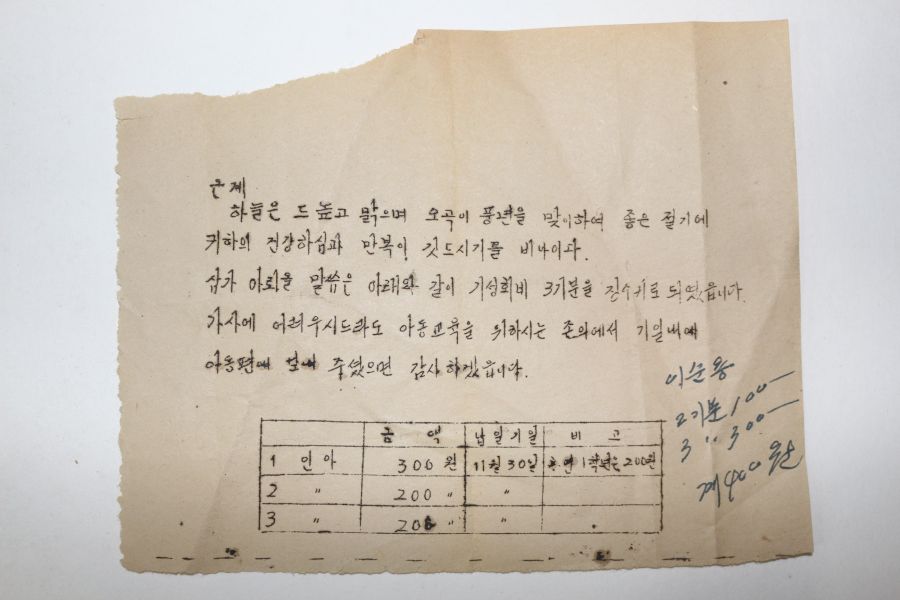 근계
하늘은 드높고 맑으며 오곡이 풍년을 맞이하여 좋은 절기에
귀하의 건강하심과 만복이 깃드시기를 비나이다.
삼가 아뢰올 말씀은 아래와 같이 기성회비 3기분을 진수키로 되였읍니다.
가사에 어려우시드라도 아동교육을 위하시는 존의에서 기일내에
아동편에 보내 주셨으면 감사하겠읍니다.
금 액 납일기일 비 고
1 인아 300원 11월 30일 1학년은 200원
2 〃 200 〃 〃
3 〃 200 〃 〃
이순용
2기분 100—
3 〃 300—
계 400원